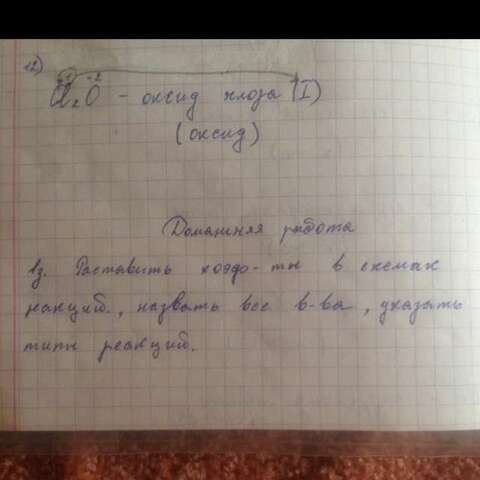 12) +1 -2
Cl₂O – оксид хлора (I)
(оксид)
Домашняя работа
1з. Расставить коэфф-ты в схемах
реакций, назвать все в-ва, указать
типы реакций.